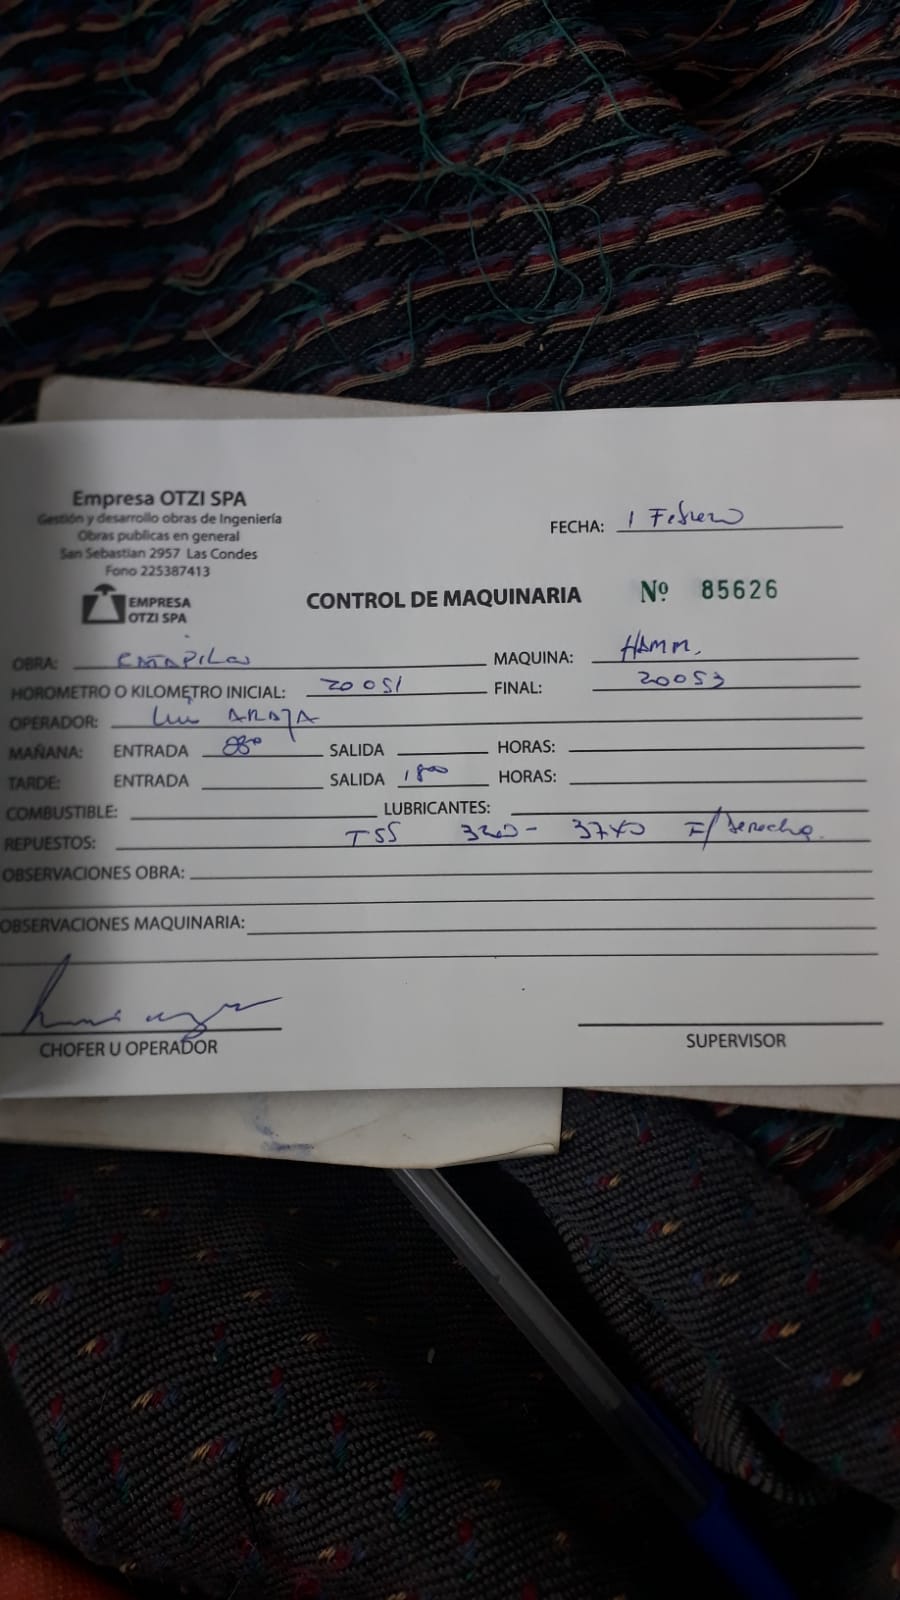 Empresa OTZI SPA
Gestión y desarrollo obras de Ingeniería
Obras publicas en general
San Sebastian 2957 Las Condes
Fono 225387413
EMPRESA
OTZI SPA
FECHA: 1 Febrero
CONTROL DE MAQUINARIA Nº 85626
OBRA: MAQUINA: HAMM.
HOROMETRO O KILOMETRO INICIAL: 20051 FINAL: 20053
OPERADOR: Luis ARAYA
MAÑANA: ENTRADA 800 SALIDA HORAS:
TARDE: ENTRADA SALIDA 1800 HORAS:
COMBUSTIBLE: LUBRICANTES:
REPUESTOS: TSS 3740 F/Derecha.
OBSERVACIONES OBRA:
OBSERVACIONES MAQUINARIA:
CHOFER U OPERADOR
SUPERVISOR